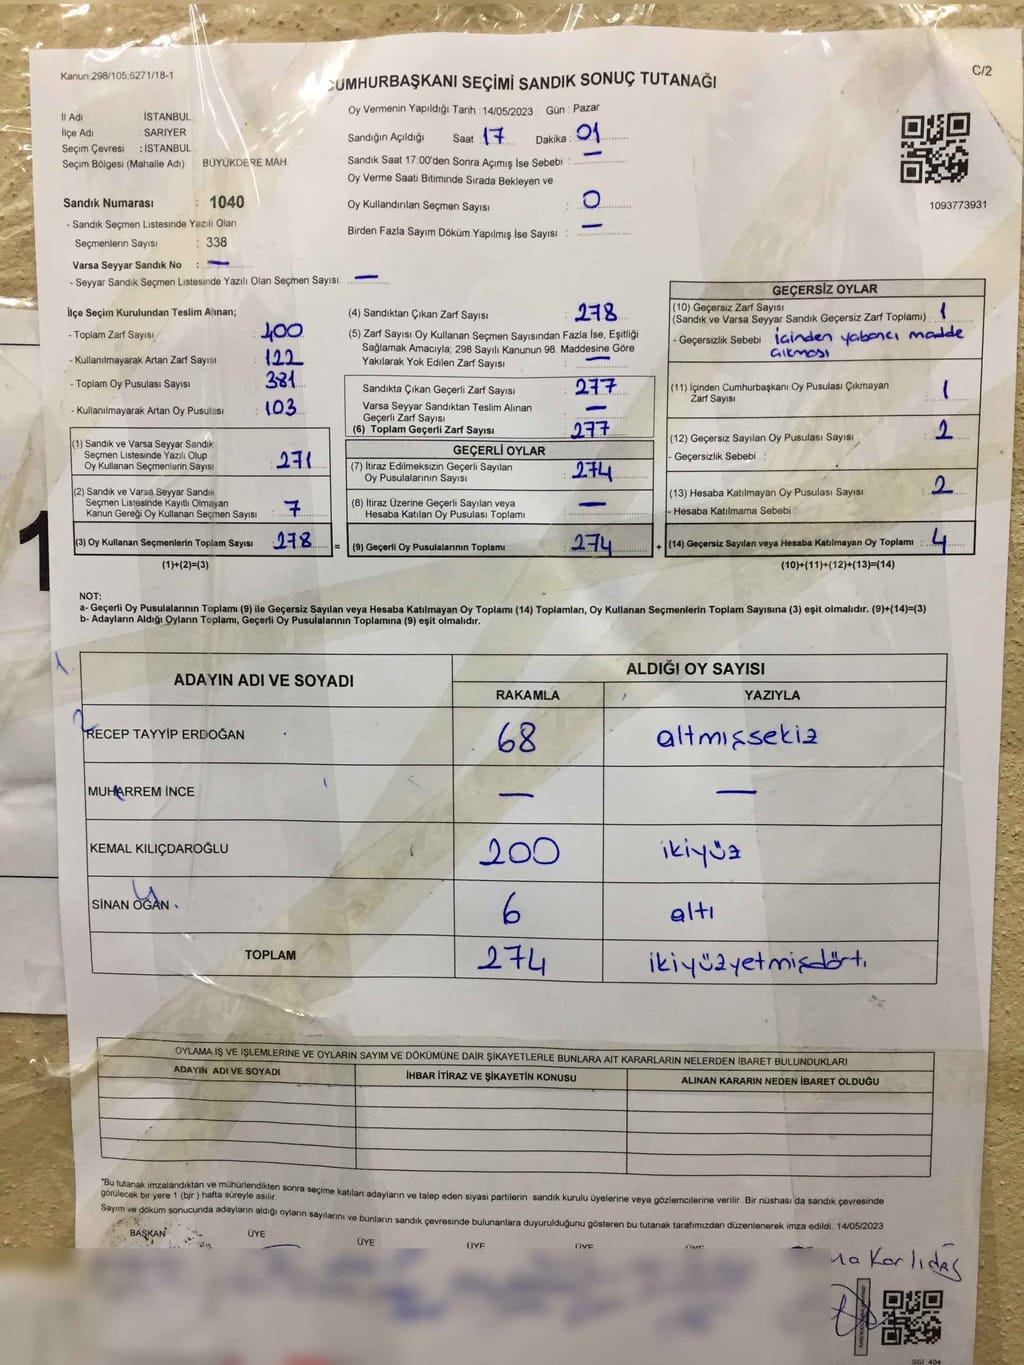 Kanun:298/105,6271/18-1
C/2
CUMHURBAŞKANI SEÇİMİ SANDIK SONUÇ TUTANAĞI
İl Adı : İSTANBUL
İlçe Adı : SARIYER
Seçim Çevresi : İSTANBUL
Seçim Bölgesi (Mahalle Adı) BÜYÜKDERE MAH
Sandık Numarası : 1040
- Sandık Seçmen Listesinde Yazılı Olan
Seçmenlerin Sayısı : 338
Varsa Seyyar Sandık No : —
- Seyyar Sandık Seçmen Listesinde Yazılı Olan Seçmen Sayısı: —
Oy Vermenin Yapıldığı Tarih : 14/05/2023 Gün : Pazar
Sandığın Açıldığı Saat : 17 Dakika : 01
Sandık Saat 17:00'den Sonra Açımış İse Sebebi : —
Oy Verme Saati Bitiminde Sırada Bekleyen ve
Oy Kullandırılan Seçmen Sayısı : 0
Birden Fazla Sayım Döküm Yapılmış İse Sayısı : —
1093773931
İlçe Seçim Kurulundan Teslim Alınan;
- Toplam Zarf Sayısı : 400
- Kullanılmayarak Artan Zarf Sayısı : 122
- Toplam Oy Pusulası Sayısı : 381
- Kullanılmayarak Artan Oy Pusulası : 103
(1) Sandık ve Varsa Seyyar Sandık
Seçmen Listesinde Yazılı Olup
Oy Kullanan Seçmenlerin Sayısı : 271
(2) Sandık ve Varsa Seyyar Sandık
Seçmen Listesinde Kayıtlı Olmayan
Kanun Gereği Oy Kullanan Seçmen Sayısı : 7
(3) Oy Kullanan Seçmenlerin Toplam Sayısı : 278
(1)+(2)=(3)
=
(4) Sandıktan Çıkan Zarf Sayısı : 278
(5) Zarf Sayısı Oy Kullanan Seçmen Sayısından Fazla İse, Eşitliği
Sağlamak Amacıyla, 298 Sayılı Kanunun 98. Maddesine Göre
Yakılarak Yok Edilen Zarf Sayısı : —
Sandıkta Çıkan Geçerli Zarf Sayısı : 277
Varsa Seyyar Sandıktan Teslim Alınan
Geçerli Zarf Sayısı : —
(6) Toplam Geçerli Zarf Sayısı : 277
GEÇERLİ OYLAR
(7) İtiraz Edilmeksizin Geçerli Sayılan
Oy Pusulalarının Sayısı : 274
(8) İtiraz Üzerine Geçerli Sayılan veya
Hesaba Katılan Oy Pusulası Toplamı : —
(9) Geçerli Oy Pusulalarının Toplamı : 274
+
GEÇERSİZ OYLAR
(10) Geçersiz Zarf Sayısı
(Sandık ve Varsa Seyyar Sandık Geçersiz Zarf Toplamı) : 1
- Geçersizlik Sebebi : içinden yabancı madde
çıkması
(11) İçinden Cumhurbaşkanı Oy Pusulası Çıkmayan
Zarf Sayısı : 1
(12) Geçersiz Sayılan Oy Pusulası Sayısı : 2
- Geçersizlik Sebebi :
(13) Hesaba Katılmayan Oy Pusulası Sayısı : 2
- Hesaba Katılmama Sebebi :
(14) Geçersiz Sayılan veya Hesaba Katılmayan Oy Toplamı : 4
(10)+(11)+(12)+(13)=(14)
NOT:
a- Geçerli Oy Pusulalarının Toplamı (9) ile Geçersiz Sayılan veya Hesaba Katılmayan Oy Toplamı (14) Toplamları, Oy Kullanan Seçmenlerin Toplam Sayısına (3) eşit olmalıdır. (9)+(14)=(3)
b- Adayların Aldığı Oyların Toplamı, Geçerli Oy Pusulalarının Toplamına (9) eşit olmalıdır.
ADAYIN ADI VE SOYADI
ALDIĞI OY SAYISI
RAKAMLA YAZIYLA
RECEP TAYYİP ERDOĞAN 68 altmışsekiz
MUHARREM İNCE — —
KEMAL KILIÇDAROĞLU 200 ikiyüz
SİNAN OĞAN 6 altı
TOPLAM 274 ikiyüzyetmişdört
OYLAMA İŞ VE İŞLEMLERİNE VE OYLARIN SAYIM VE DÖKÜMÜNE DAİR ŞİKAYETLERLE BUNLARA AİT KARARLARIN NELERDEN İBARET BULUNDUKLARI
ADAYIN ADI VE SOYADI İHBAR İTİRAZ VE ŞİKAYETİN KONUSU ALINAN KARARIN NEDEN İBARET OLDUĞU
"Bu tutanak imzalandıktan ve mühürlendikten sonra seçime katılan adayların ve talep eden siyasi partilerin sandık kurulu üyelerine veya gözlemcilerine verilir. Bir nüshası da sandık çevresinde
görülecek bir yere 1 (bir) hafta süreyle asılır.
Sayım ve döküm sonucunda adayların aldığı oyların sayılarını ve bunların sandık çevresinde bulunanlara duyurulduğunu gösteren bu tutanak tarafımızdan düzenlenerek imza edildi. 14/05/2023
BAŞKAN ÜYE ÜYE ÜYE ÜYE ÜYE
Karlıdağ